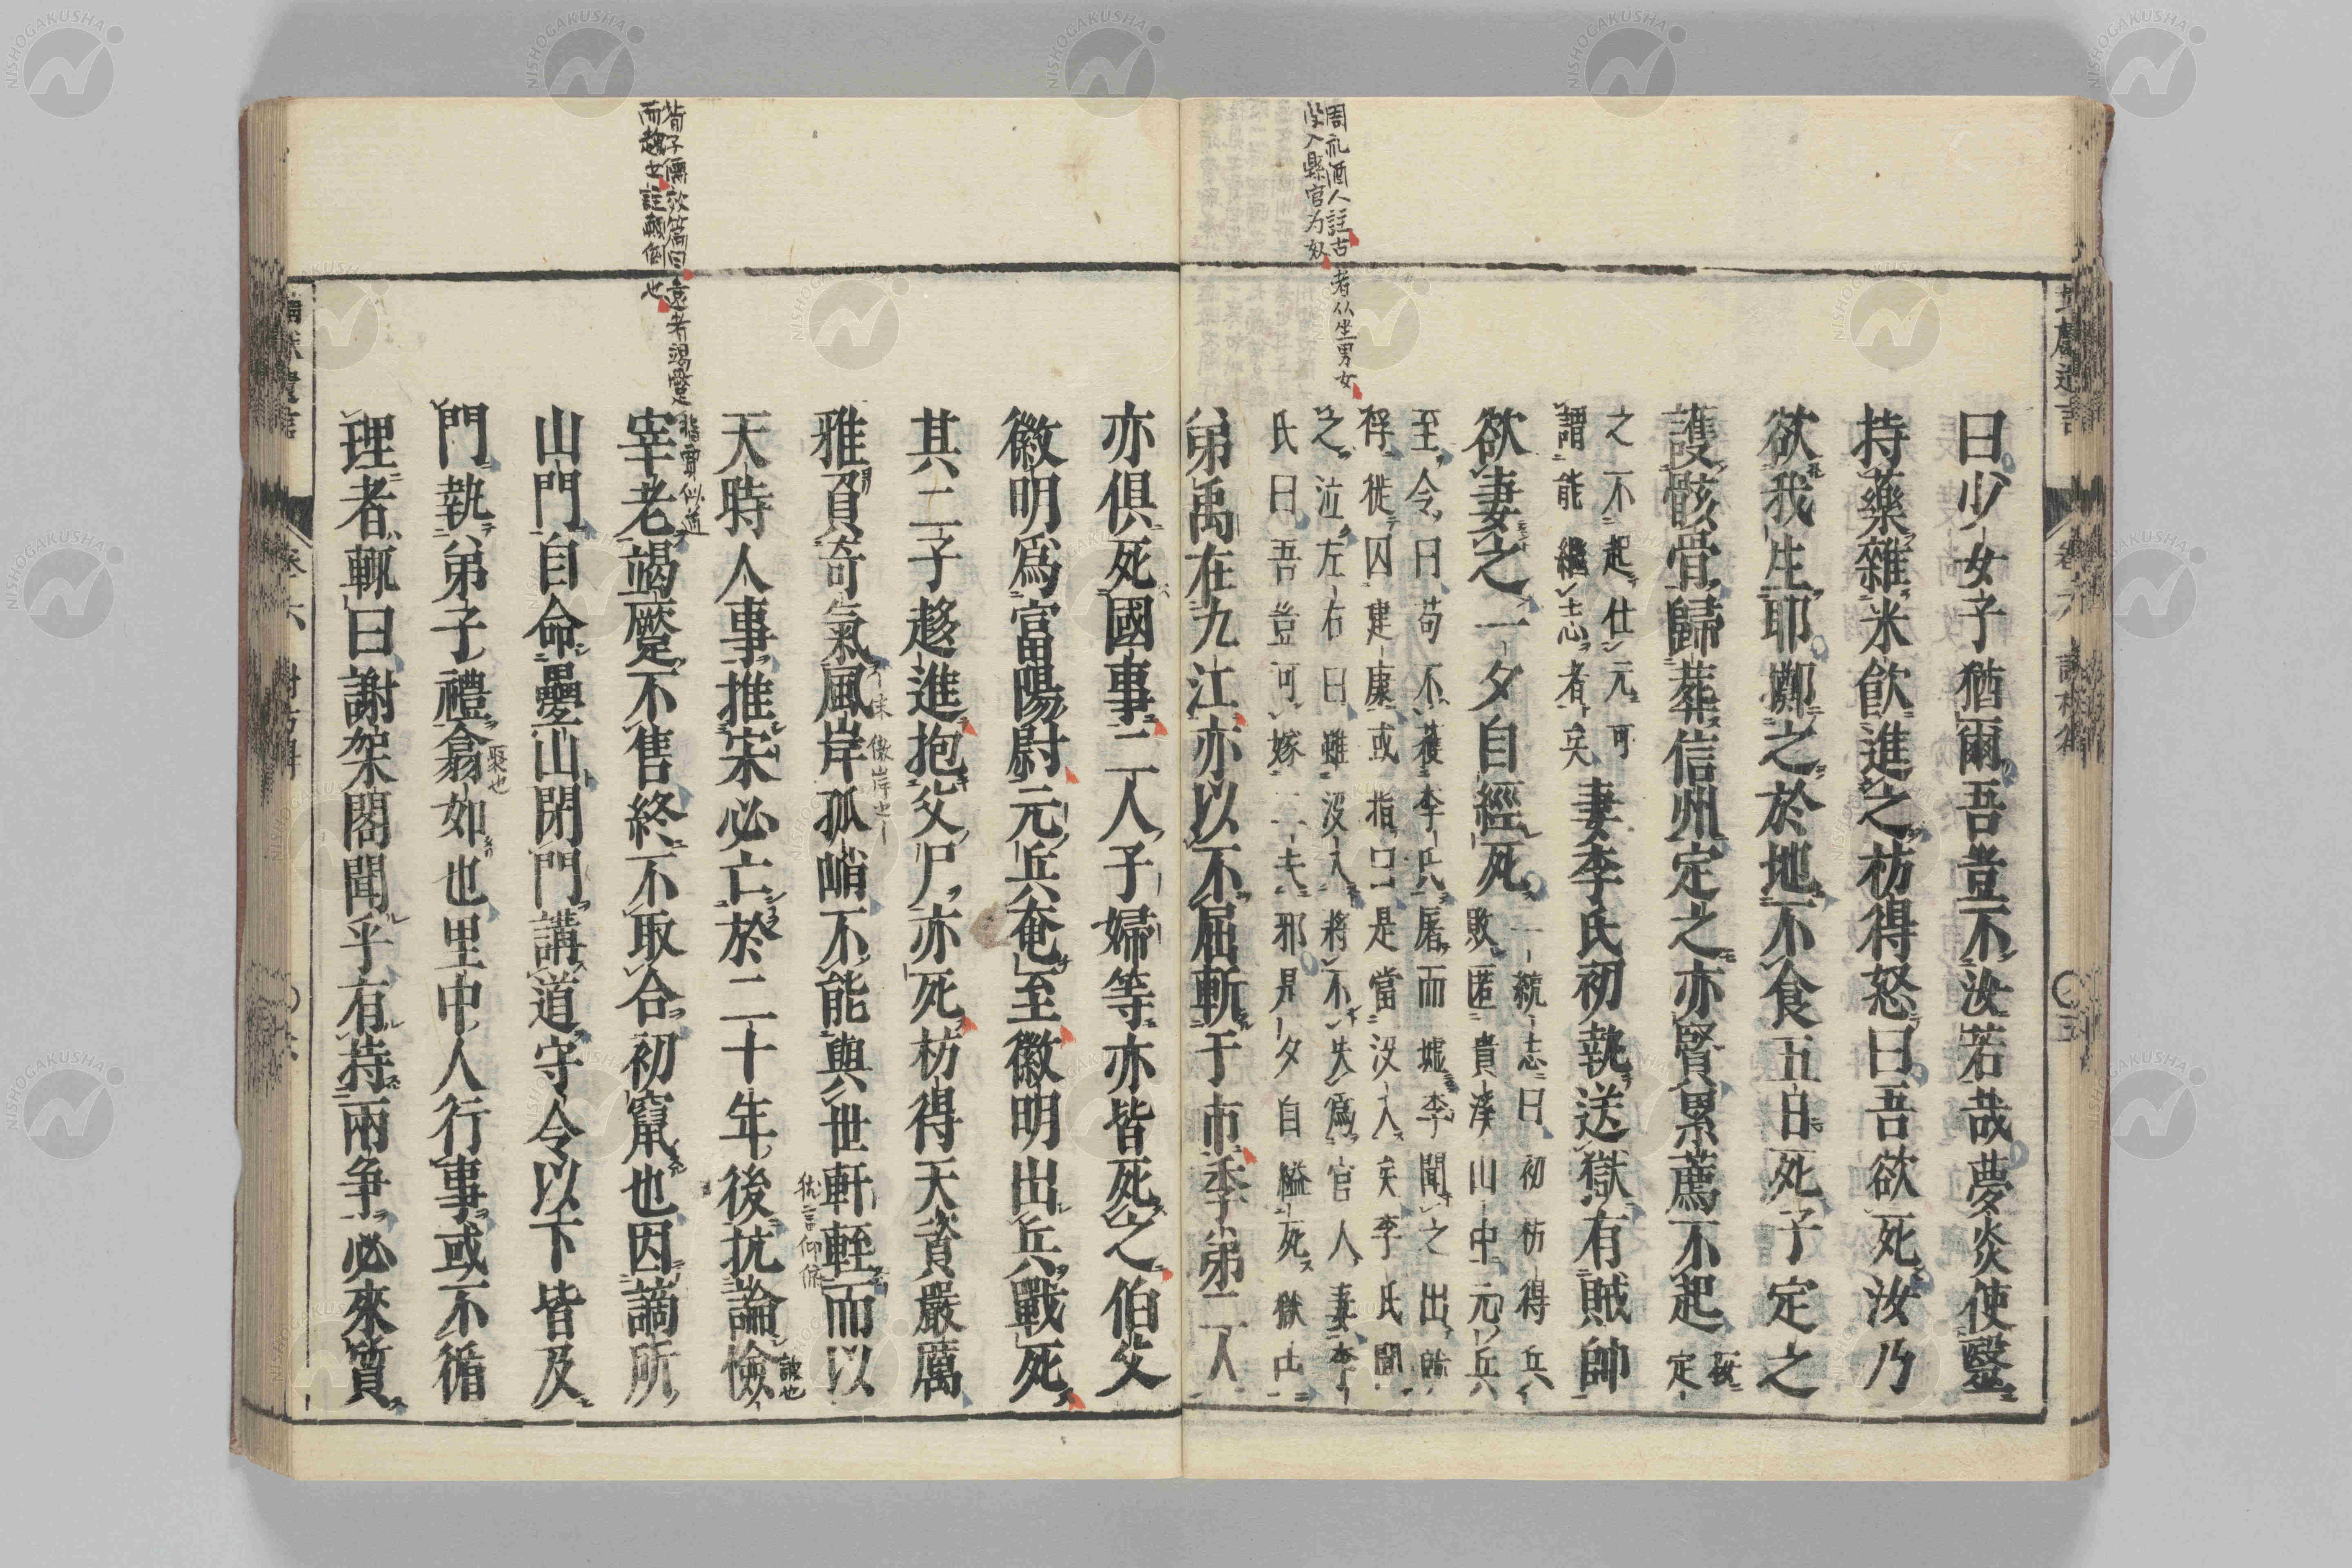 周礼酒人註古者从坐男女
没入縣官为奴
曰少女子猶爾吾豈不汝若哉夢炎使毉
持藥雜米飲進之枋得怒曰吾欲死汝乃
欲我生耶擲之於地不食五日死子定之
護骸骨歸葬信州定之亦賢累薦不起
定
之不起仕元可
謂能繼志者矣
妻李氏初執送獄有賊帥
欲妻之一夕自經死
一統志曰初枋得兵
敗匿貴溪山中元兵
至令曰苟不獲李氏屠而墟李聞之出就
俘徙囚建康或指曰是當没入矣李氏聞
之泣左右曰雖没入將不失為官人妻李
氏曰吾豈可嫁二夫邪是夕自縊死獄中
弟禹在九江亦以不屈斬于市季弟二人
亦俱死國事二人子婦等亦皆死之伯父
徽明爲富陽尉元兵奄至徽明出兵戰死
其二子趍進抱父尸亦死枋得天資嚴厲
雅負奇氣風岸孤峭不能與世軒輊而以
天時人事推宋必亡於二十年後抗論憸
宰老竭蹷不售終不取合初竄也因謫所
山門自命疊山閉門講道守令以下皆及
門執弟子禮翕如也里中人行事或不循
理者輒曰謝架閣聞乎有持兩爭必來質
荀子儒效篇曰遠者竭蹷
而趨之註顛倒也
聚也
卷六